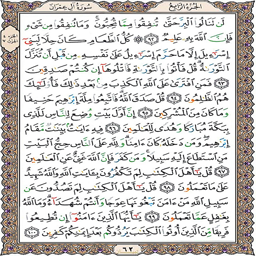 الجزء الرابع سورة آل عمران
لَن تَنَالُوا۟ ٱلْبِرَّ حَتَّىٰ تُنفِقُوا۟ مِمَّا تُحِبُّونَ وَمَا تُنفِقُوا۟ مِن شَىْءٍ
فَإِنَّ ٱللَّهَ بِهِۦ عَلِيمٌ ٩٢ ۞ كُلُّ ٱلطَّعَامِ كَانَ حِلًّا لِّبَنِىٓ
إِسْرَٰٓءِيلَ إِلَّا مَا حَرَّمَ إِسْرَٰٓءِيلُ عَلَىٰ نَفْسِهِۦ مِن قَبْلِ أَن تُنَزَّلَ
ٱلتَّوْرَىٰةُ قُلْ فَأْتُوا۟ بِٱلتَّوْرَىٰةِ فَٱتْلُوهَآ إِن كُنتُمْ صَٰدِقِينَ
٩٣ فَمَنِ ٱفْتَرَىٰ عَلَى ٱللَّهِ ٱلْكَذِبَ مِنۢ بَعْدِ ذَٰلِكَ فَأُو۟لَٰٓئِكَ
هُمُ ٱلظَّٰلِمُونَ ٩٤ قُلْ صَدَقَ ٱللَّهُ فَٱتَّبِعُوا۟ مِلَّةَ إِبْرَٰهِيمَ حَنِيفًا
وَمَا كَانَ مِنَ ٱلْمُشْرِكِينَ ٩٥ إِنَّ أَوَّلَ بَيْتٍ وُضِعَ لِلنَّاسِ لَلَّذِى
بِبَكَّةَ مُبَارَكًا وَهُدًى لِّلْعَٰلَمِينَ ٩٦ فِيهِ ءَايَٰتٌۢ بَيِّنَٰتٌ مَّقَامُ
إِبْرَٰهِيمَ وَمَن دَخَلَهُۥ كَانَ ءَامِنًا وَلِلَّهِ عَلَى ٱلنَّاسِ حِجُّ ٱلْبَيْتِ
مَنِ ٱسْتَطَاعَ إِلَيْهِ سَبِيلًا وَمَن كَفَرَ فَإِنَّ ٱللَّهَ غَنِىٌّ عَنِ ٱلْعَٰلَمِينَ
٩٧ قُلْ يَٰٓأَهْلَ ٱلْكِتَٰبِ لِمَ تَكْفُرُونَ بِـَٔايَٰتِ ٱللَّهِ وَٱللَّهُ شَهِيدٌ
عَلَىٰ مَا تَعْمَلُونَ ٩٨ قُلْ يَٰٓأَهْلَ ٱلْكِتَٰبِ لِمَ تَصُدُّونَ عَن
سَبِيلِ ٱللَّهِ مَنْ ءَامَنَ تَبْغُونَهَا عِوَجًا وَأَنتُمْ شُهَدَآءُ وَمَا ٱللَّهُ
بِغَٰفِلٍ عَمَّا تَعْمَلُونَ ٩٩ يَٰٓأَيُّهَا ٱلَّذِينَ ءَامَنُوٓا۟ إِن تُطِيعُوا۟
فَرِيقًا مِّنَ ٱلَّذِينَ أُوتُوا۟ ٱلْكِتَٰبَ يَرُدُّوكُم بَعْدَ إِيمَٰنِكُمْ كَٰفِرِينَ ١٠٠
٦٢